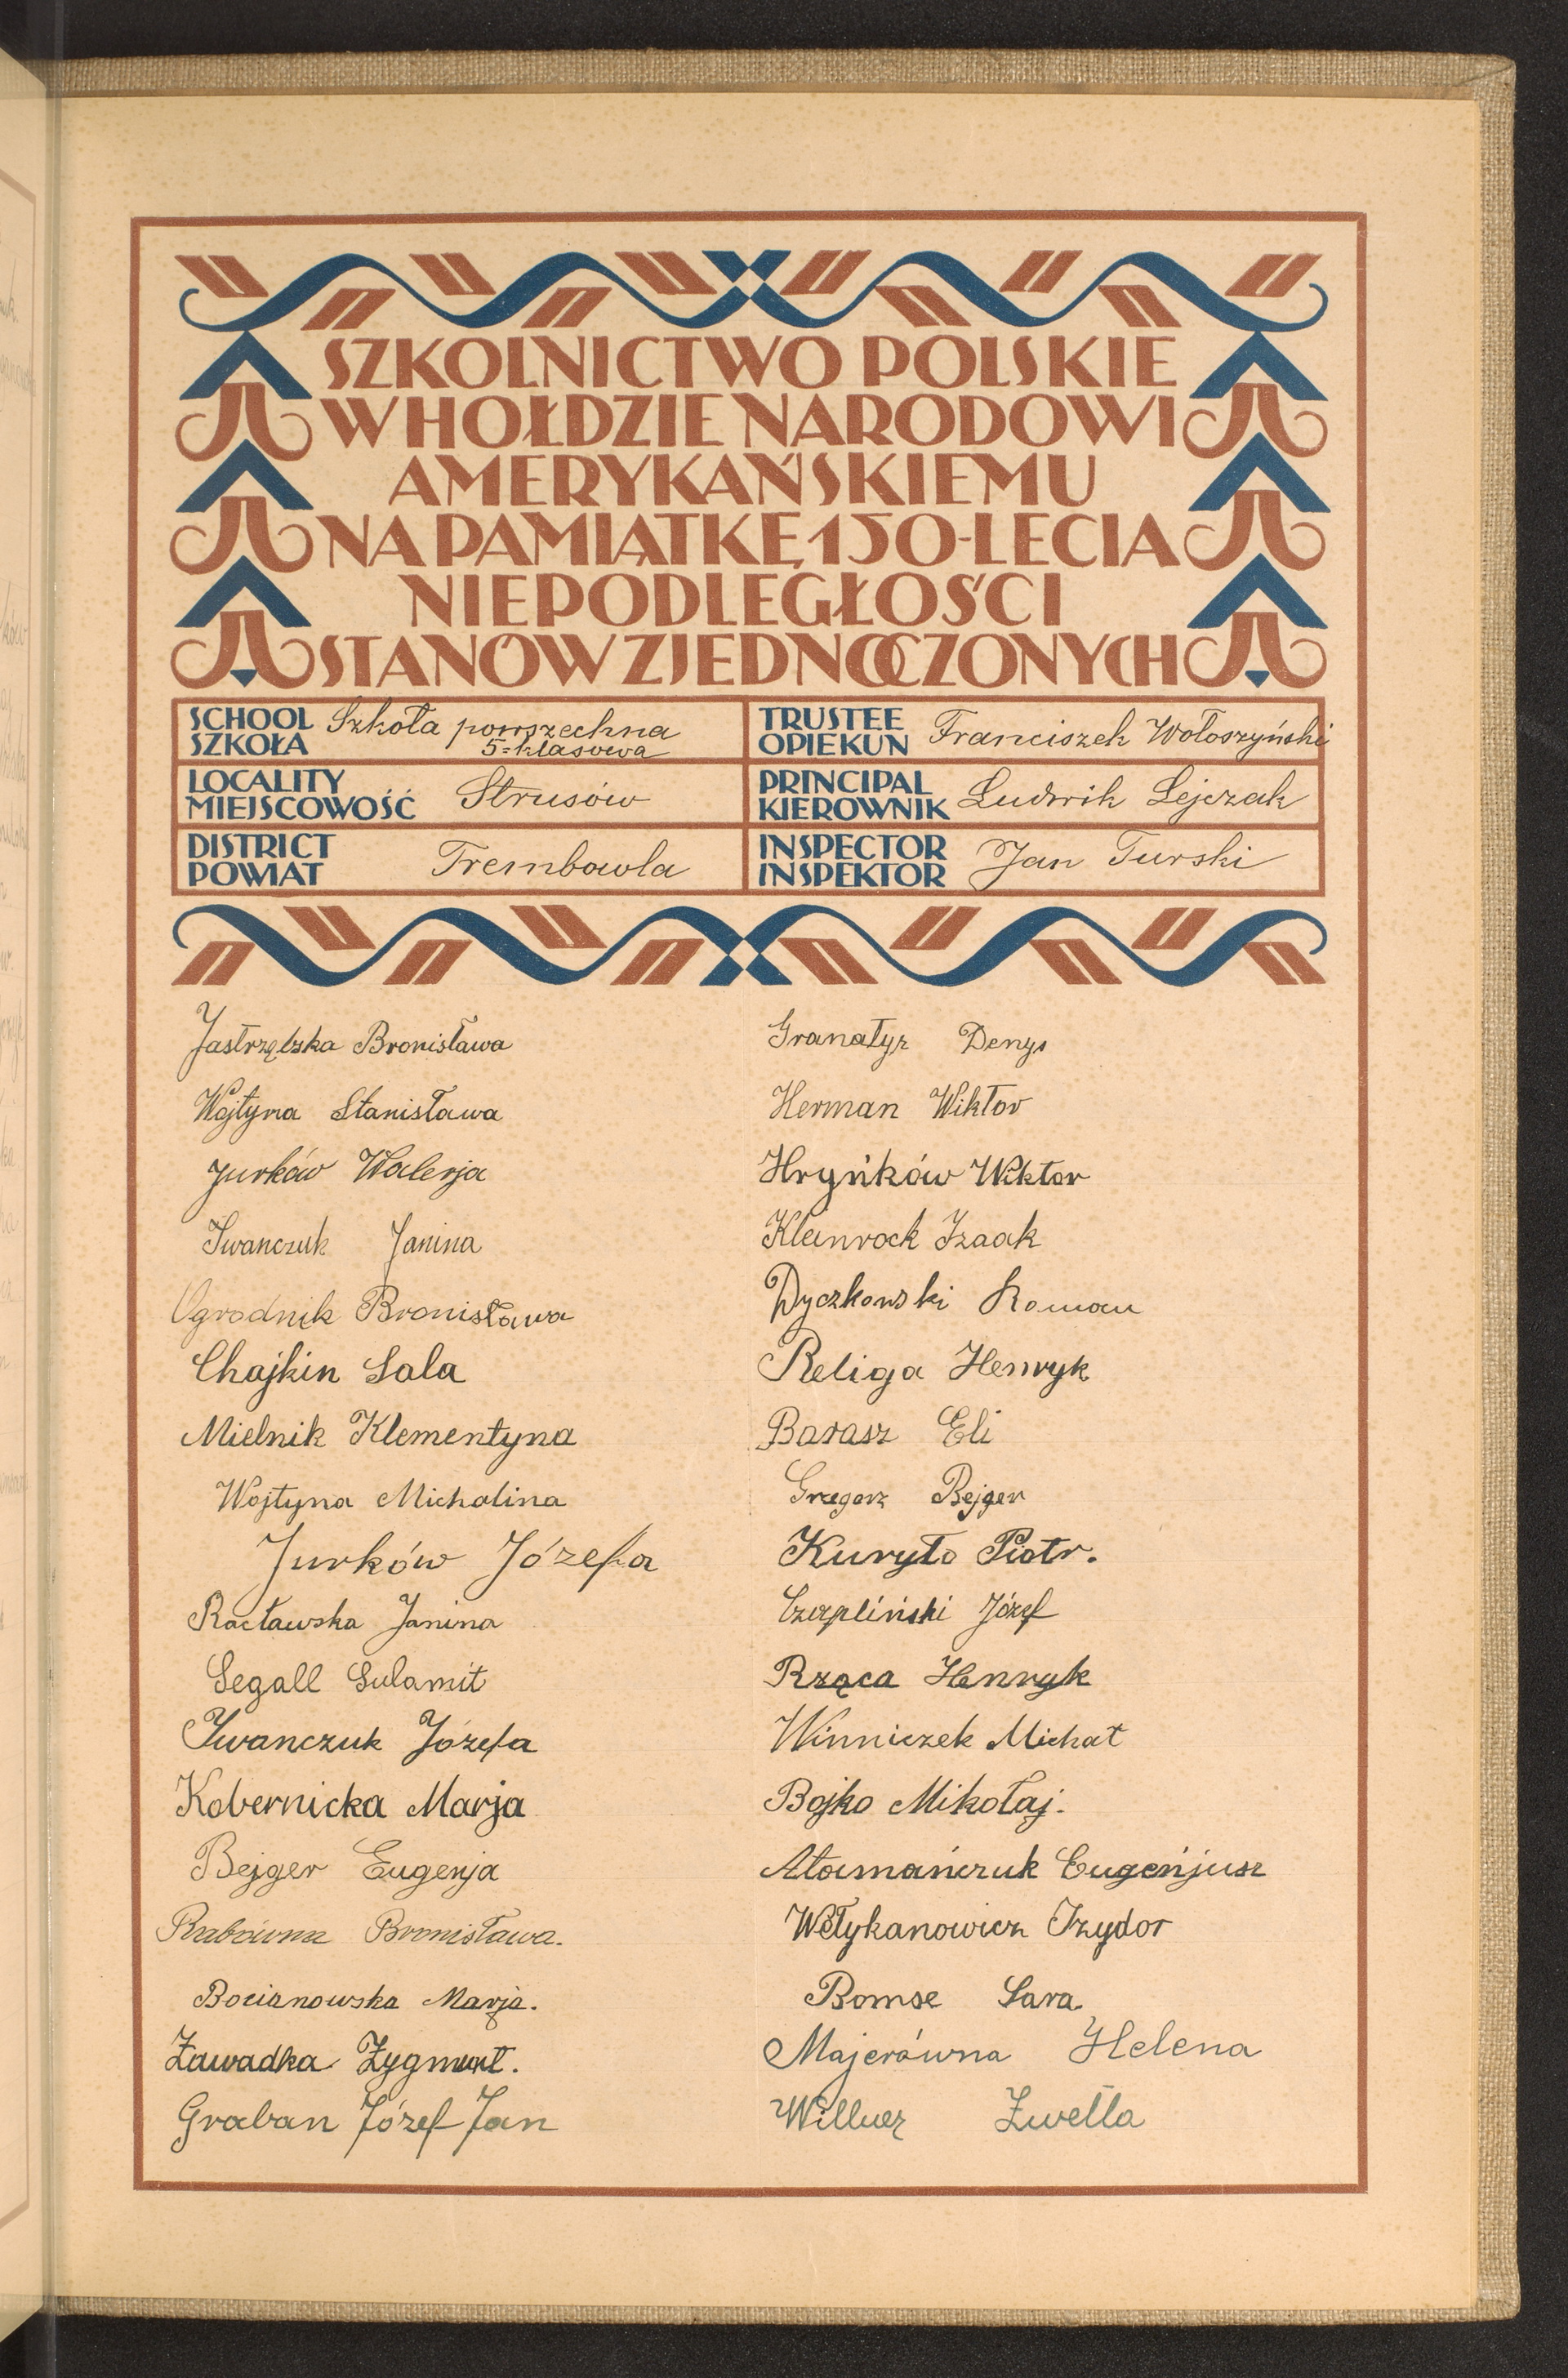 SZKOLNICTWO POLSKIE
W HOŁDZIE NARODOWI
AMERYKAŃSKIEMU
NA PAMIĄTKĘ 150-LECIA
NIEPODLEGŁOŚCI
STANÓW ZJEDNOCZONYCH
SCHOOL
SZKOŁA
Szkoła powszechna
5=klasowa
TRUSTEE
OPIEKUN
Franciszek Wołoszyński
LOCALITY
MIEJSCOWOŚĆ
Strusów
PRINCIPAL
KIEROWNIK
Ludwik Lejczak
DISTRICT
POWIAT
Trembowla
INSPECTOR
INSPEKTOR
Jan Turski
Jastrzębska Bronisława
Wojtyna Stanisława
Jurków Walerja
Iwanczuk Janina
Ogrodnik Bronisława
Chajkin Sala
Mielnik Klementyna
Wojtyna Michalina
Jurków Józefa
Racławska Janina
Segall Sulamit
Iwanczuk Józefa
Kobernicka Marja
Bejger Eugenja
Bronisława.
Bocianowska Marja.
Zawadka Zygmunt.
Graban Józef Jan
Granatyr Denys
Herman Wiktor
Hryńków Wiktor
Kleinrock Izaak
Dyczkowski Roman
Religa Henryk
Barasz Eli
Grzegorz Bejger
Kuryło Piotr.
Czerpliński Józef
Rząca Henryk
Winniczek Michał
Bojko Mikołaj.
Atamańczuk Eugeńjusz
Wełykanowicz Izydor
Bomse Sara
Majerówna Helena
Willner Zwetla